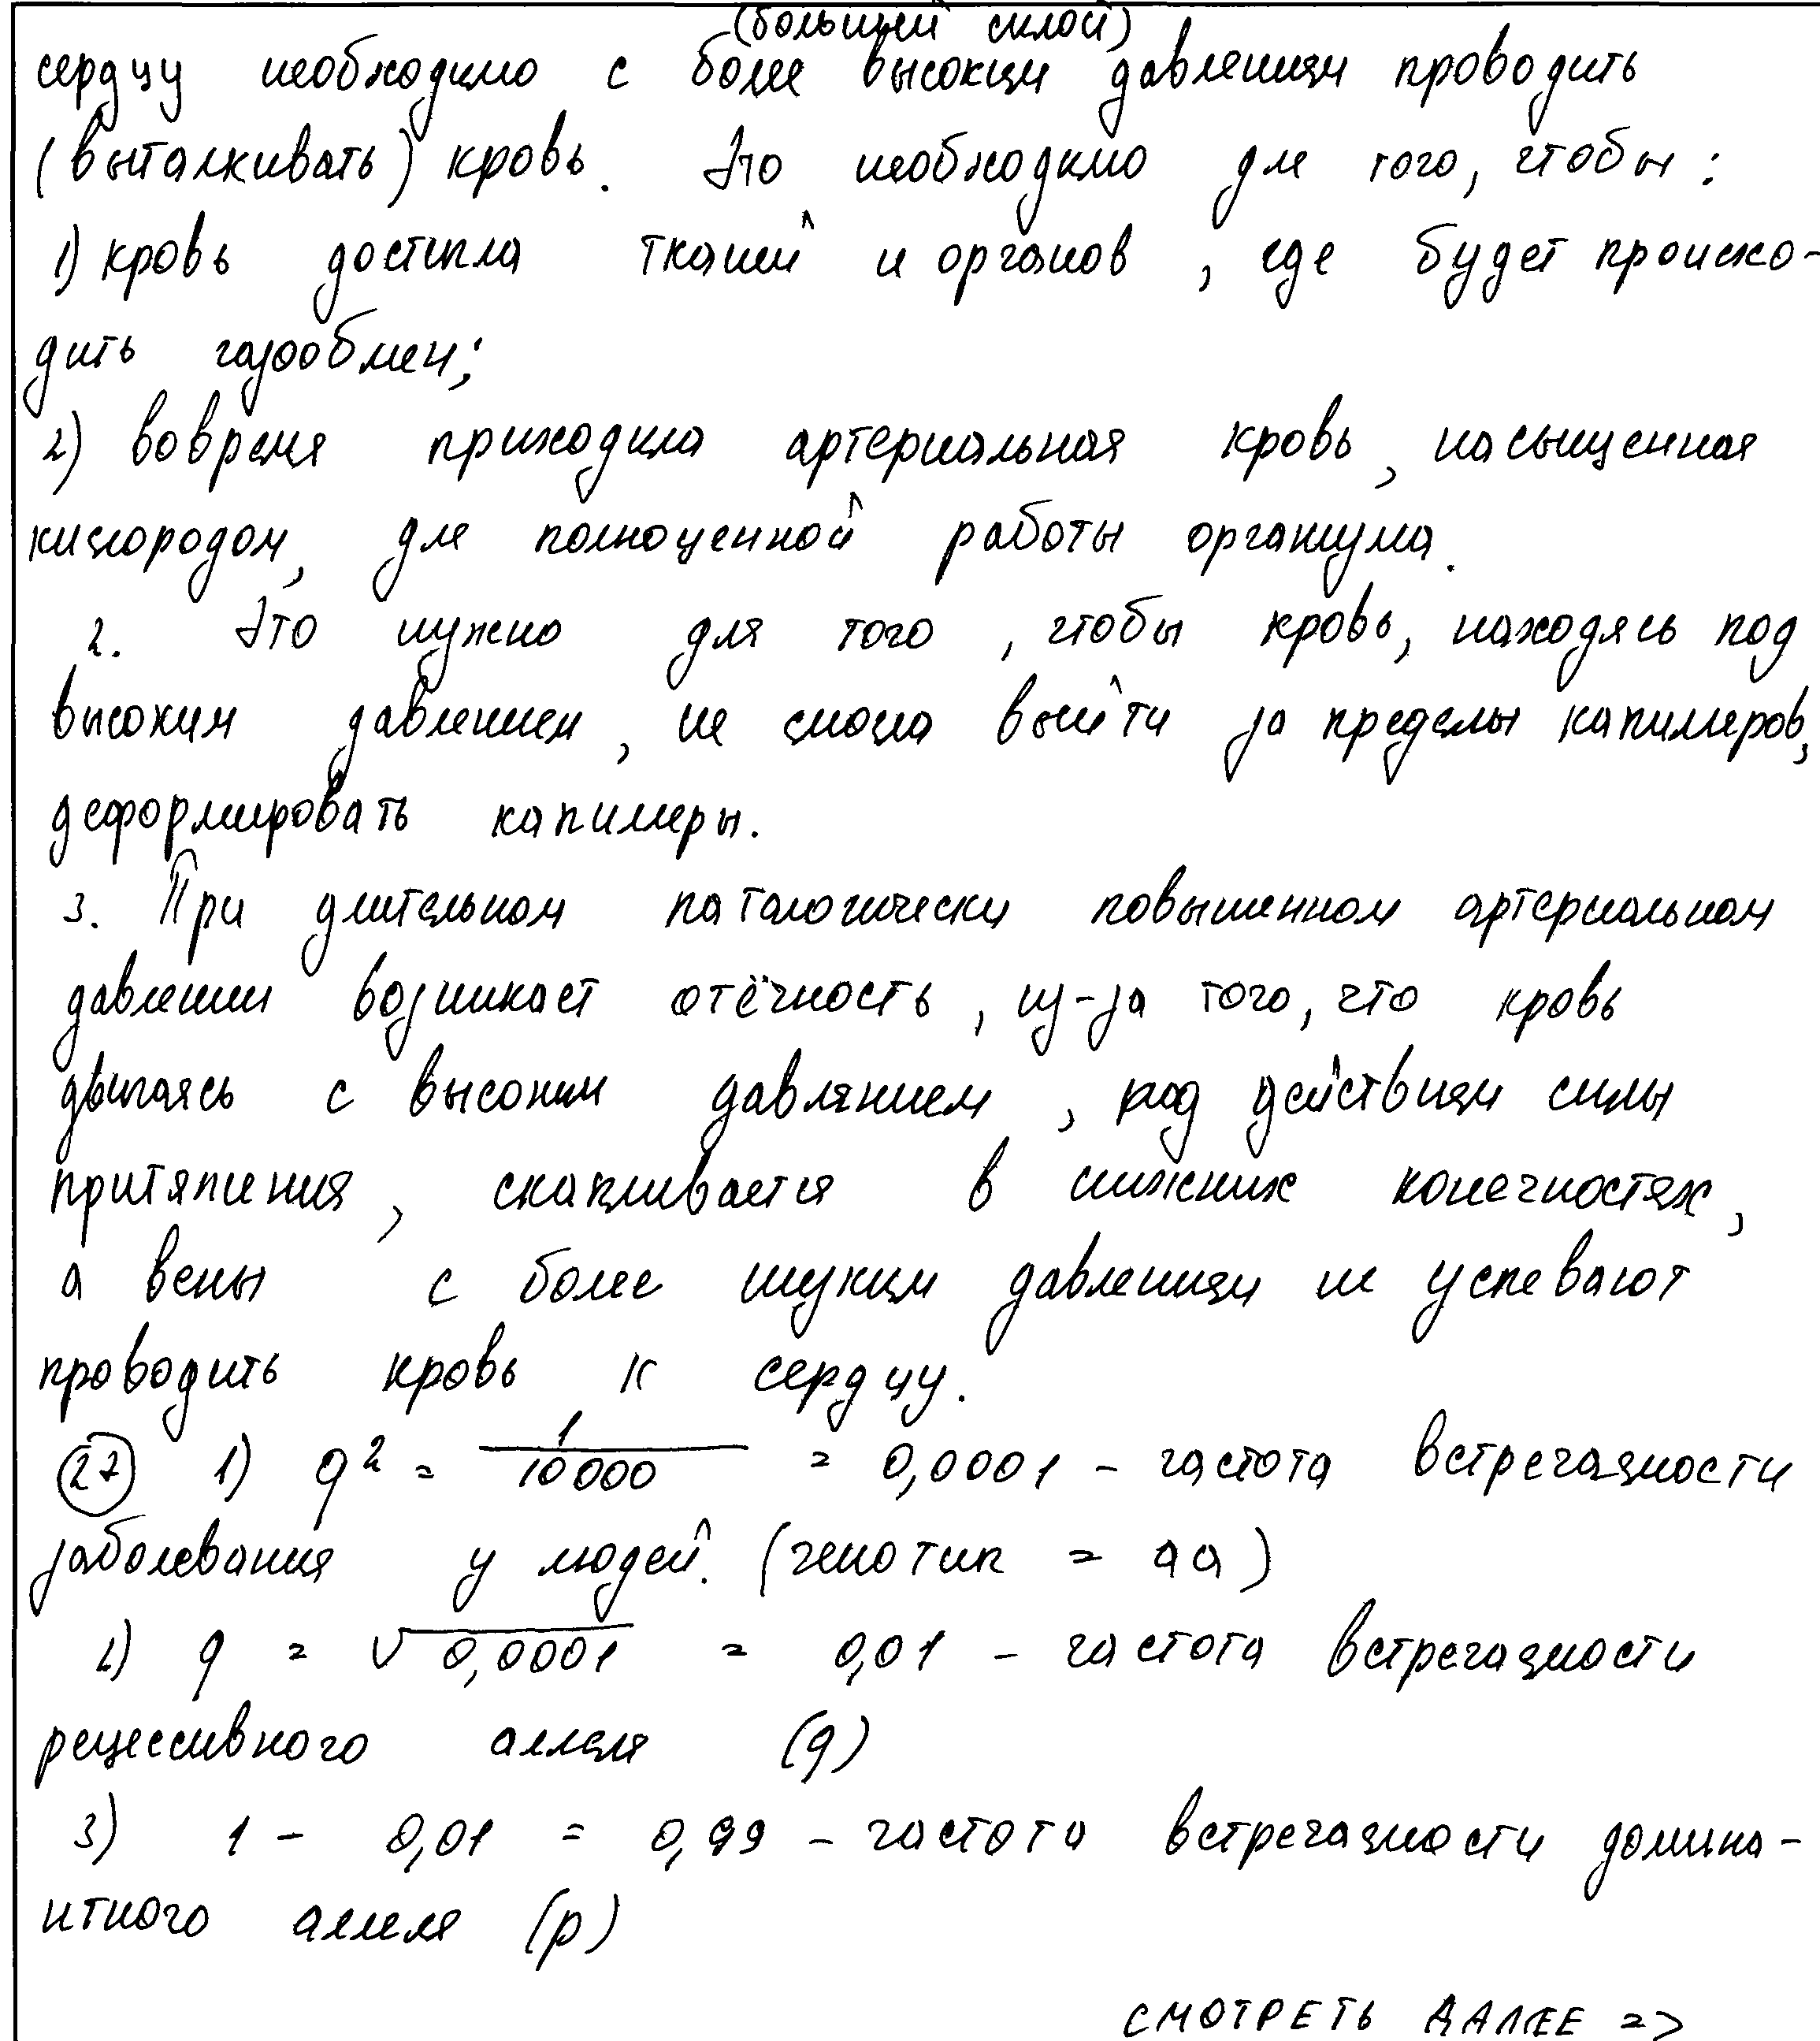 (большей силой)
сердцу необходимо с более высоким давлением проводить
(выталкивать) кровь. Это необходимо для того, чтобы:
1) кровь достигла тканей и органов, где будет происхо-
дить газообмен;
2) вовремя приходила артериальная кровь, насыщенная
кислородом, для полноценной работы организма.
2. Это нужно для того, чтобы кровь, находясь под
высоким давлением, не смогла выйти за пределы капилляров,
деформировать капилляры.
3. При длительном патологически повышенном артериальном
давлении возникает отёчность, из-за того, что кровь
двигаясь с высоким давлянием, под действием силы
притяжения, скапливается в нижних конечностях,
а вены с более низким давлением не успевают
проводить кровь к сердцу.
27 1) q² = 1/10000 = 0,0001 - частота встречаемости
заболевания у людей. (генотип = aa)
2) q = √0,0001 = 0,01 - частота встречаемости
рецессивного аллеля (q)
3) 1 - 0,01 = 0,99 - частота встречаемости домина-
нтного аллеля (p)
СМОТРЕТЬ ДАЛЕЕ =>